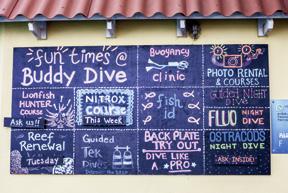 fun times @
Buddy Dive
Buoyancy
clinic
PHOTO RENTAL
& COURSES
LIONFISH
HUNTER
COURSE
Ask us!!
NITROX
COURSE
This Week
fish
id
Guided Night
DIVE
FLUO NIGHT
DIVE
Reef
Renewal
Tuesday
Guided
Tek
Dive
BACK PLATE
TRY OUT
DIVE LIKE
A *PRO*
OSTRACODS
NIGHT DIVE
ASK INSIDE!